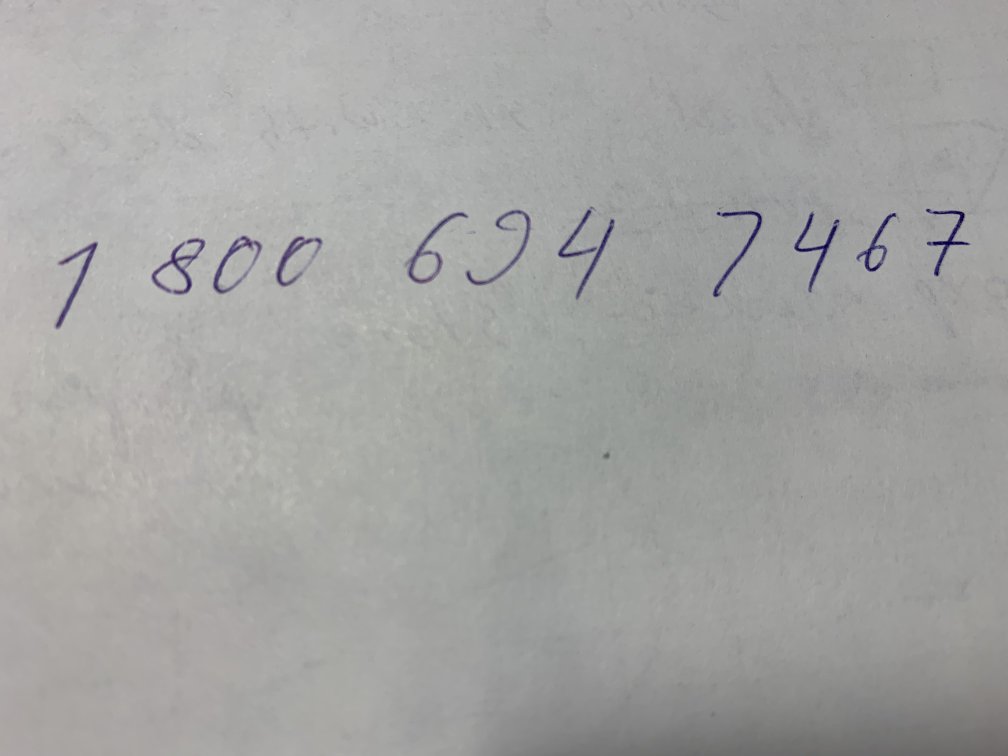 1 800 694 7467